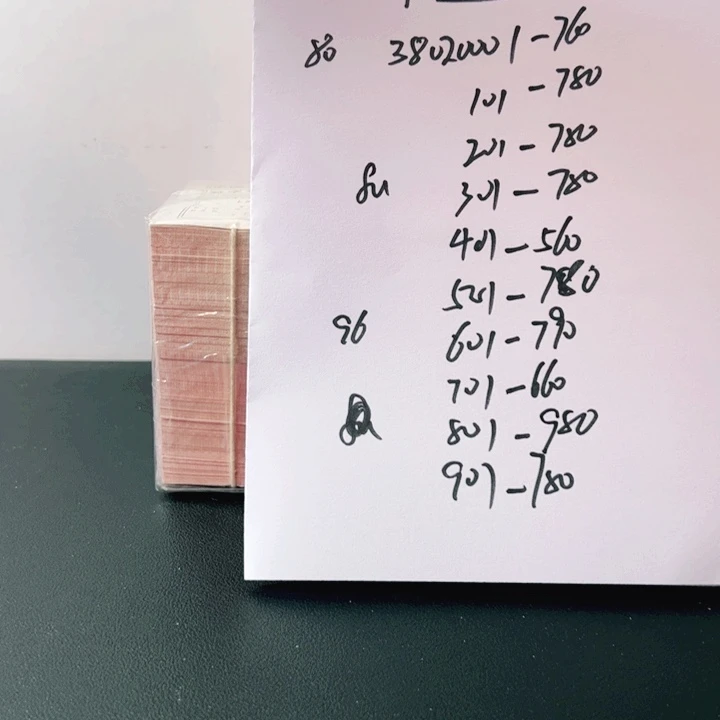 80 38020001-760
101-780
201-780
301-780
401-560
501-780
96 601-790
701-660
801-980
901-780